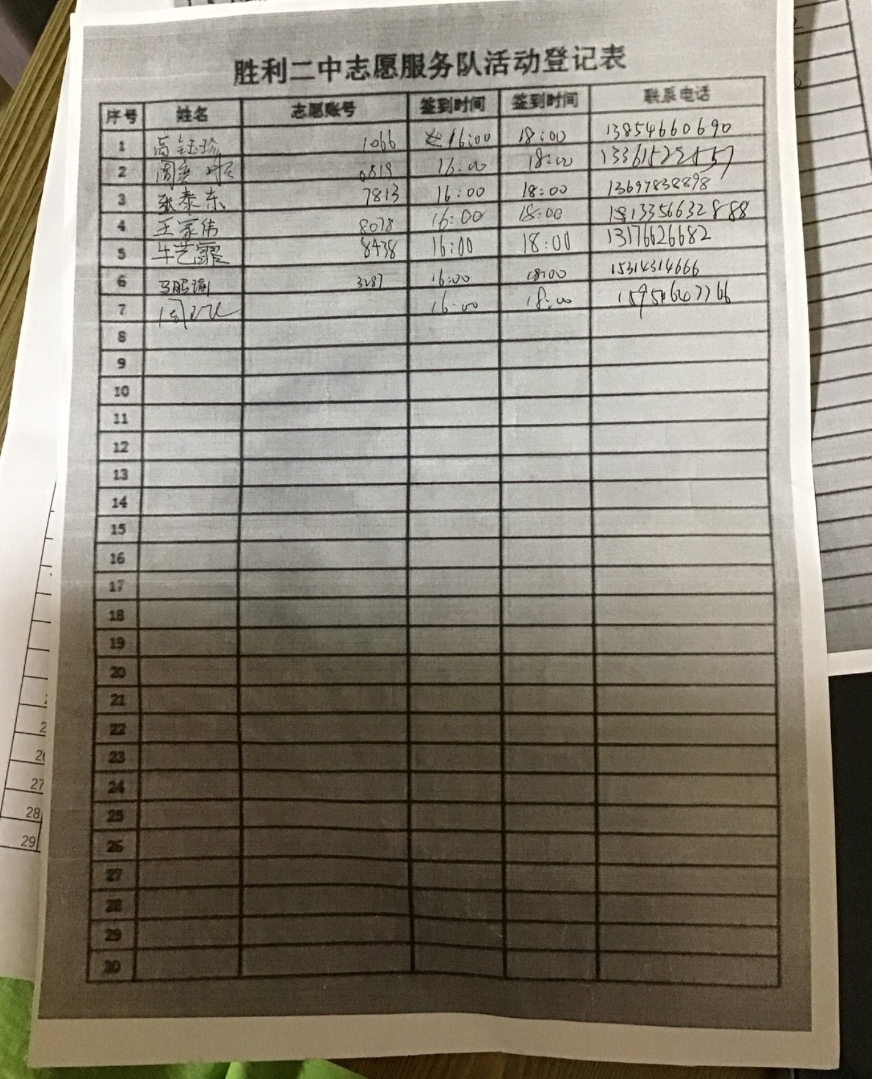 胜利二中志愿服务队活动登记表
序号 姓名 志愿账号 签到时间 签到时间 联系电话
1 高钰珍 1066 16:00 18:00 13854660690
2 0819 16:00 18:00
3 张泰东 7813 16:00 18:00 13697838898
4 王家伟 8078 16:00 18:00
5 牛艺霏 8438 16:00 18:00 13176626682
6 3287 16:00 18:00 15314314666
7 16:00 18:00
8
9
10
11
12
13
14
15
16
17
18
19
20
21
22
23
24
25
26
27
28
29
30
26
27
28
29